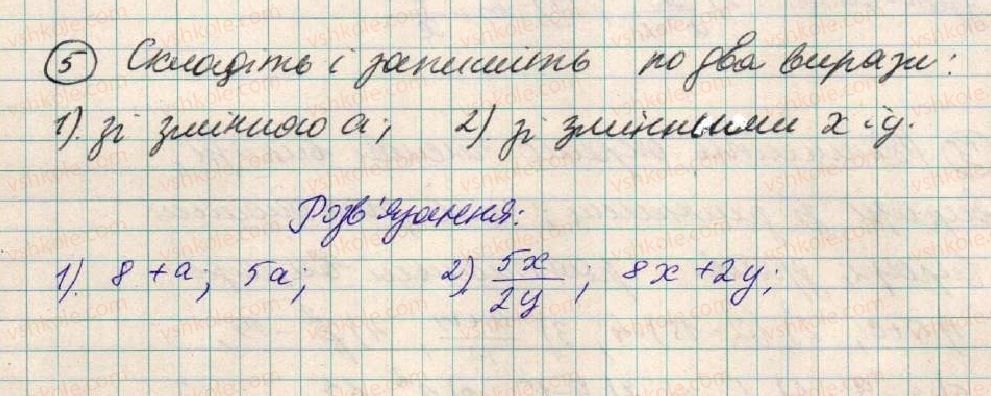 5 Складіть і запишіть по два вирази:
1). зі змінною a; 2) зі змінними x і y.
Розв'язання:
1). 8 + a; 5a; 2) 5x/2y; 8x + 2y;